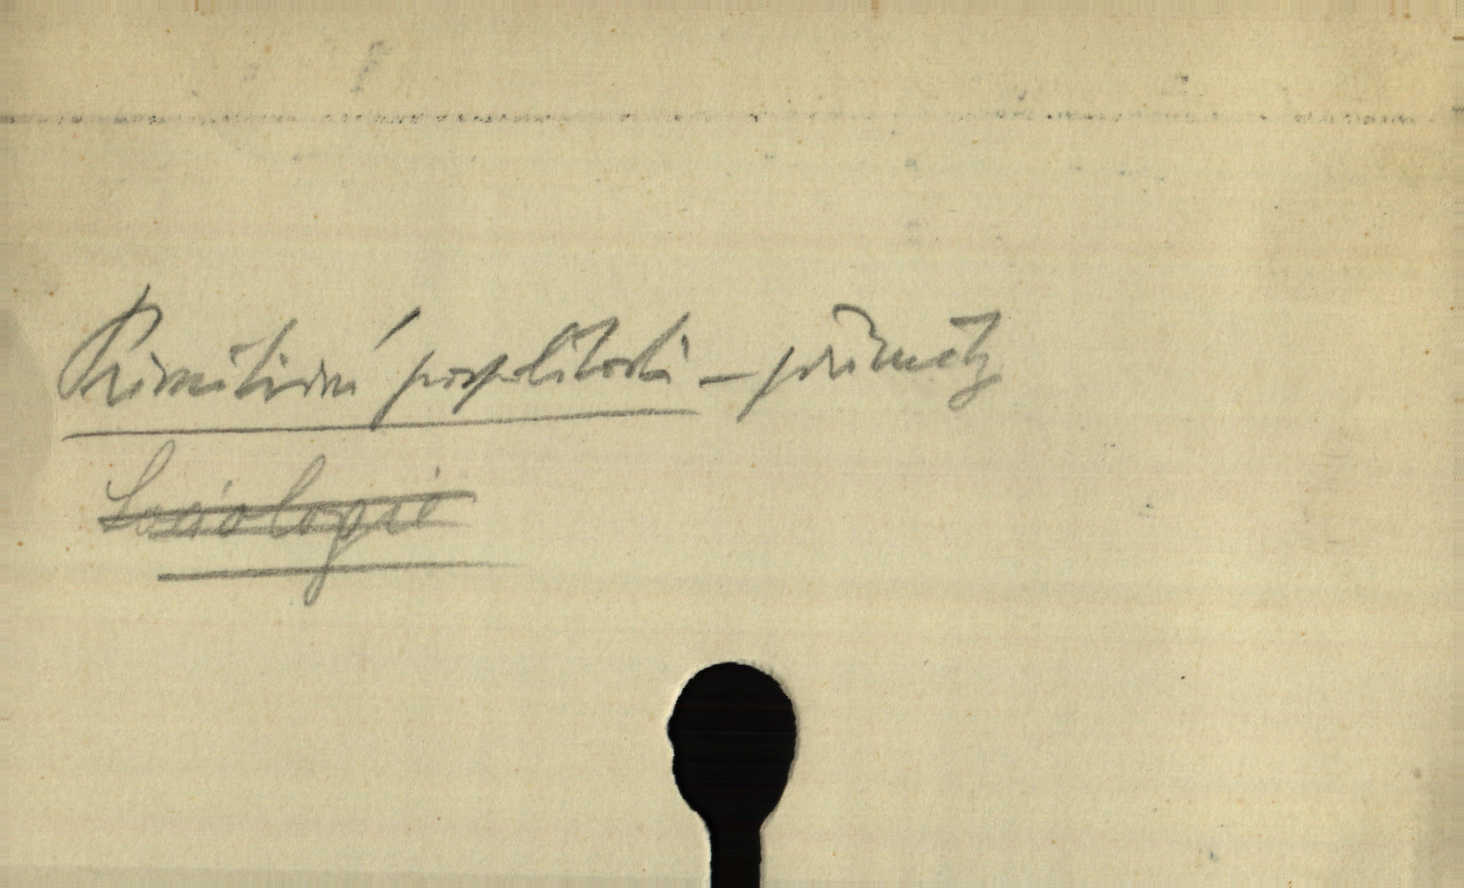 Primitivní pospolitosti – průměty
~~Sociologie~~